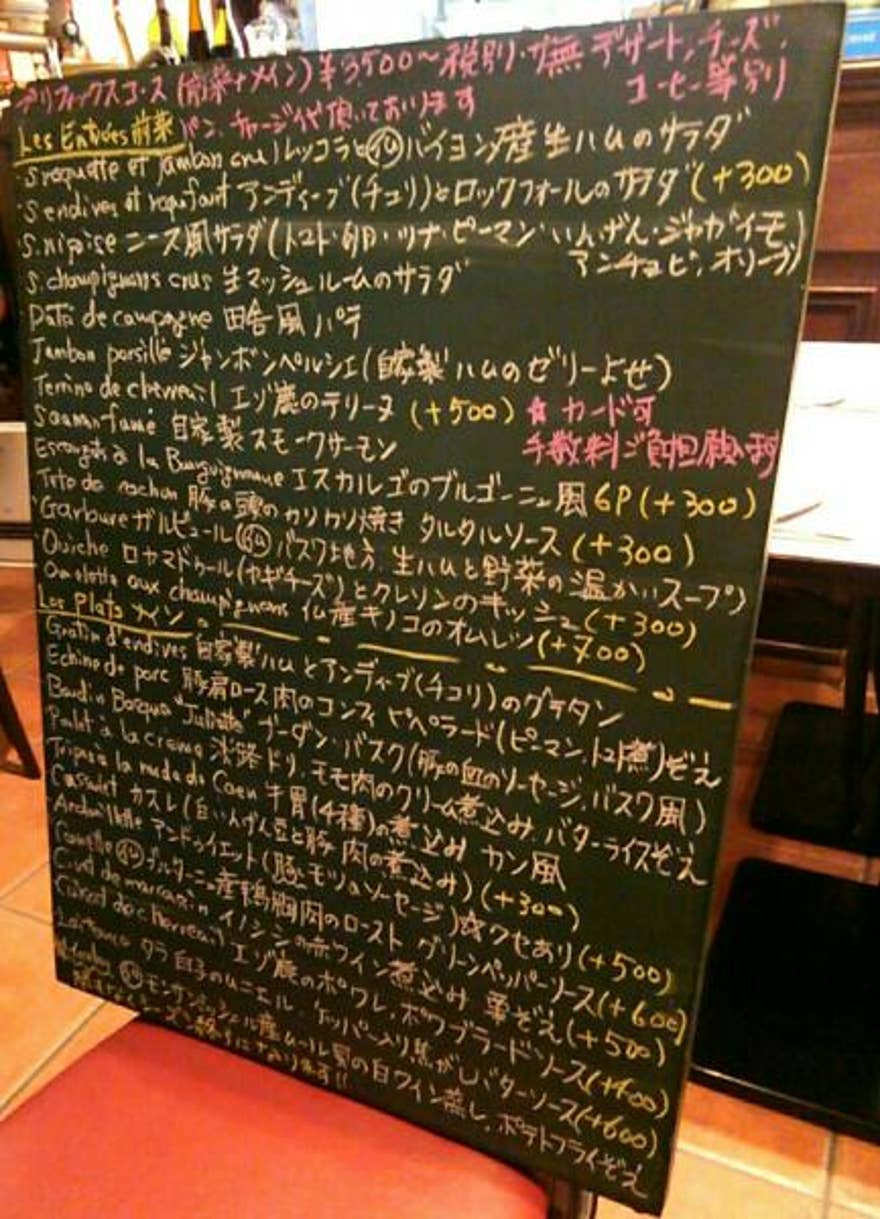 プリフィックスコース(前菜+メイン)¥3500〜税別・サ無 デザート、チーズ、
コーヒー等別り
Les Entrées 前菜 パン、チャージ代頂いております
S roquette et jambon cru ルッコラと仏バイヨンヌ産生ハムのサラダ
S endives et roquefort アンディーブ(チコリ)とロックフォールのサラダ(+300)
S. niçoise ニース風サラダ(トマト・卵・ツナ・ピーマン・いんげん・ジャガイモ
アンチョビ、オリーブ)
S. champignons crus 生マッシュルームのサラダ
Pâté de campagne 田舎風パテ
Jambon persillé ジャンボンペルシエ(自家製ハムのゼリーよせ)
Terrine de chevreuil エゾ鹿のテリーヌ(+500) ☆カード可
Saumon fumé 自家製スモークサーモン 手数料ご負担願います
Escargots à la Bourguignonne エスカルゴのブルゴーニュ風 6P(+300)
Tete de cochon 豚の頭のカリカリ焼き タルタルソース(+300)
Garbure ガルビュール(仏バスク地方、生ハムと野菜の温かいスープ)
Quiche ロカマドゥール(ヤギチーズ)とクレソンのキッシュ(+300)
Omelette aux champignons 仏産キノコのオムレツ(+700)
Les Plats メイン
Gratin d'endives 自家製ハムとアンディーブ(チコリ)のグラタン
Echine de porc 豚肩ロース肉のコンフィ ピペラード(ピーマン、トマト煮)ぞえ
Boudin Basque "Juliette" ブーダン・バスク(豚の血のソーセージ、バスク風)
Poulet à la creme 淡路ドリ、モモ肉のクリーム煮込み、バターライスぞえ
Tripes à la mode de Caen 牛胃(4種)の煮込み カン風
Cassoulet カスレ(白いんげん豆と豚肉の煮込み)(+300)
Andouillette アンドゥイエット(豚モツのソーセージ)☆クセあり(+500)
Canette 仏ブルターニュ産鴨胸肉のロースト グリーンペッパーソース(+600)
Civet de marcassin イノシシの赤ワイン煮込み ぞえ(+500)
Cuissot de chevreuil エゾ鹿のポワレ、ポワブラードソース(+400)
Laitance タラ白子のムニエル、ケッパー入り焦がしバターソース(+600)
仏モンサンミッシェル産ムール貝の白ワイン蒸し、ポテトフライぞえ